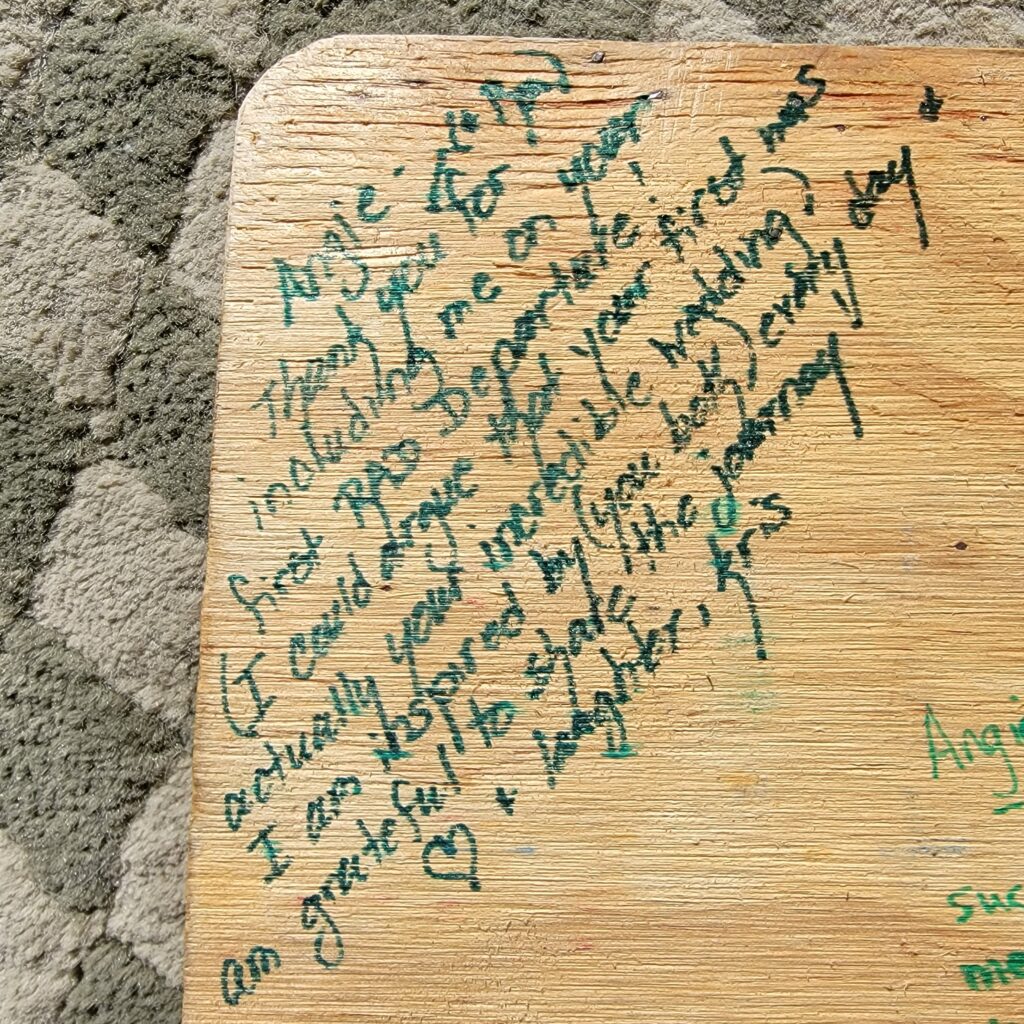 Angie
Thank you for
including me on your
first RAD Departure!
(I could argue that your first was
actually your incredible wedding)
I am inspired by (you both) every day +
am grateful to share the journey
♡ + laughter!
Angi
suc
me